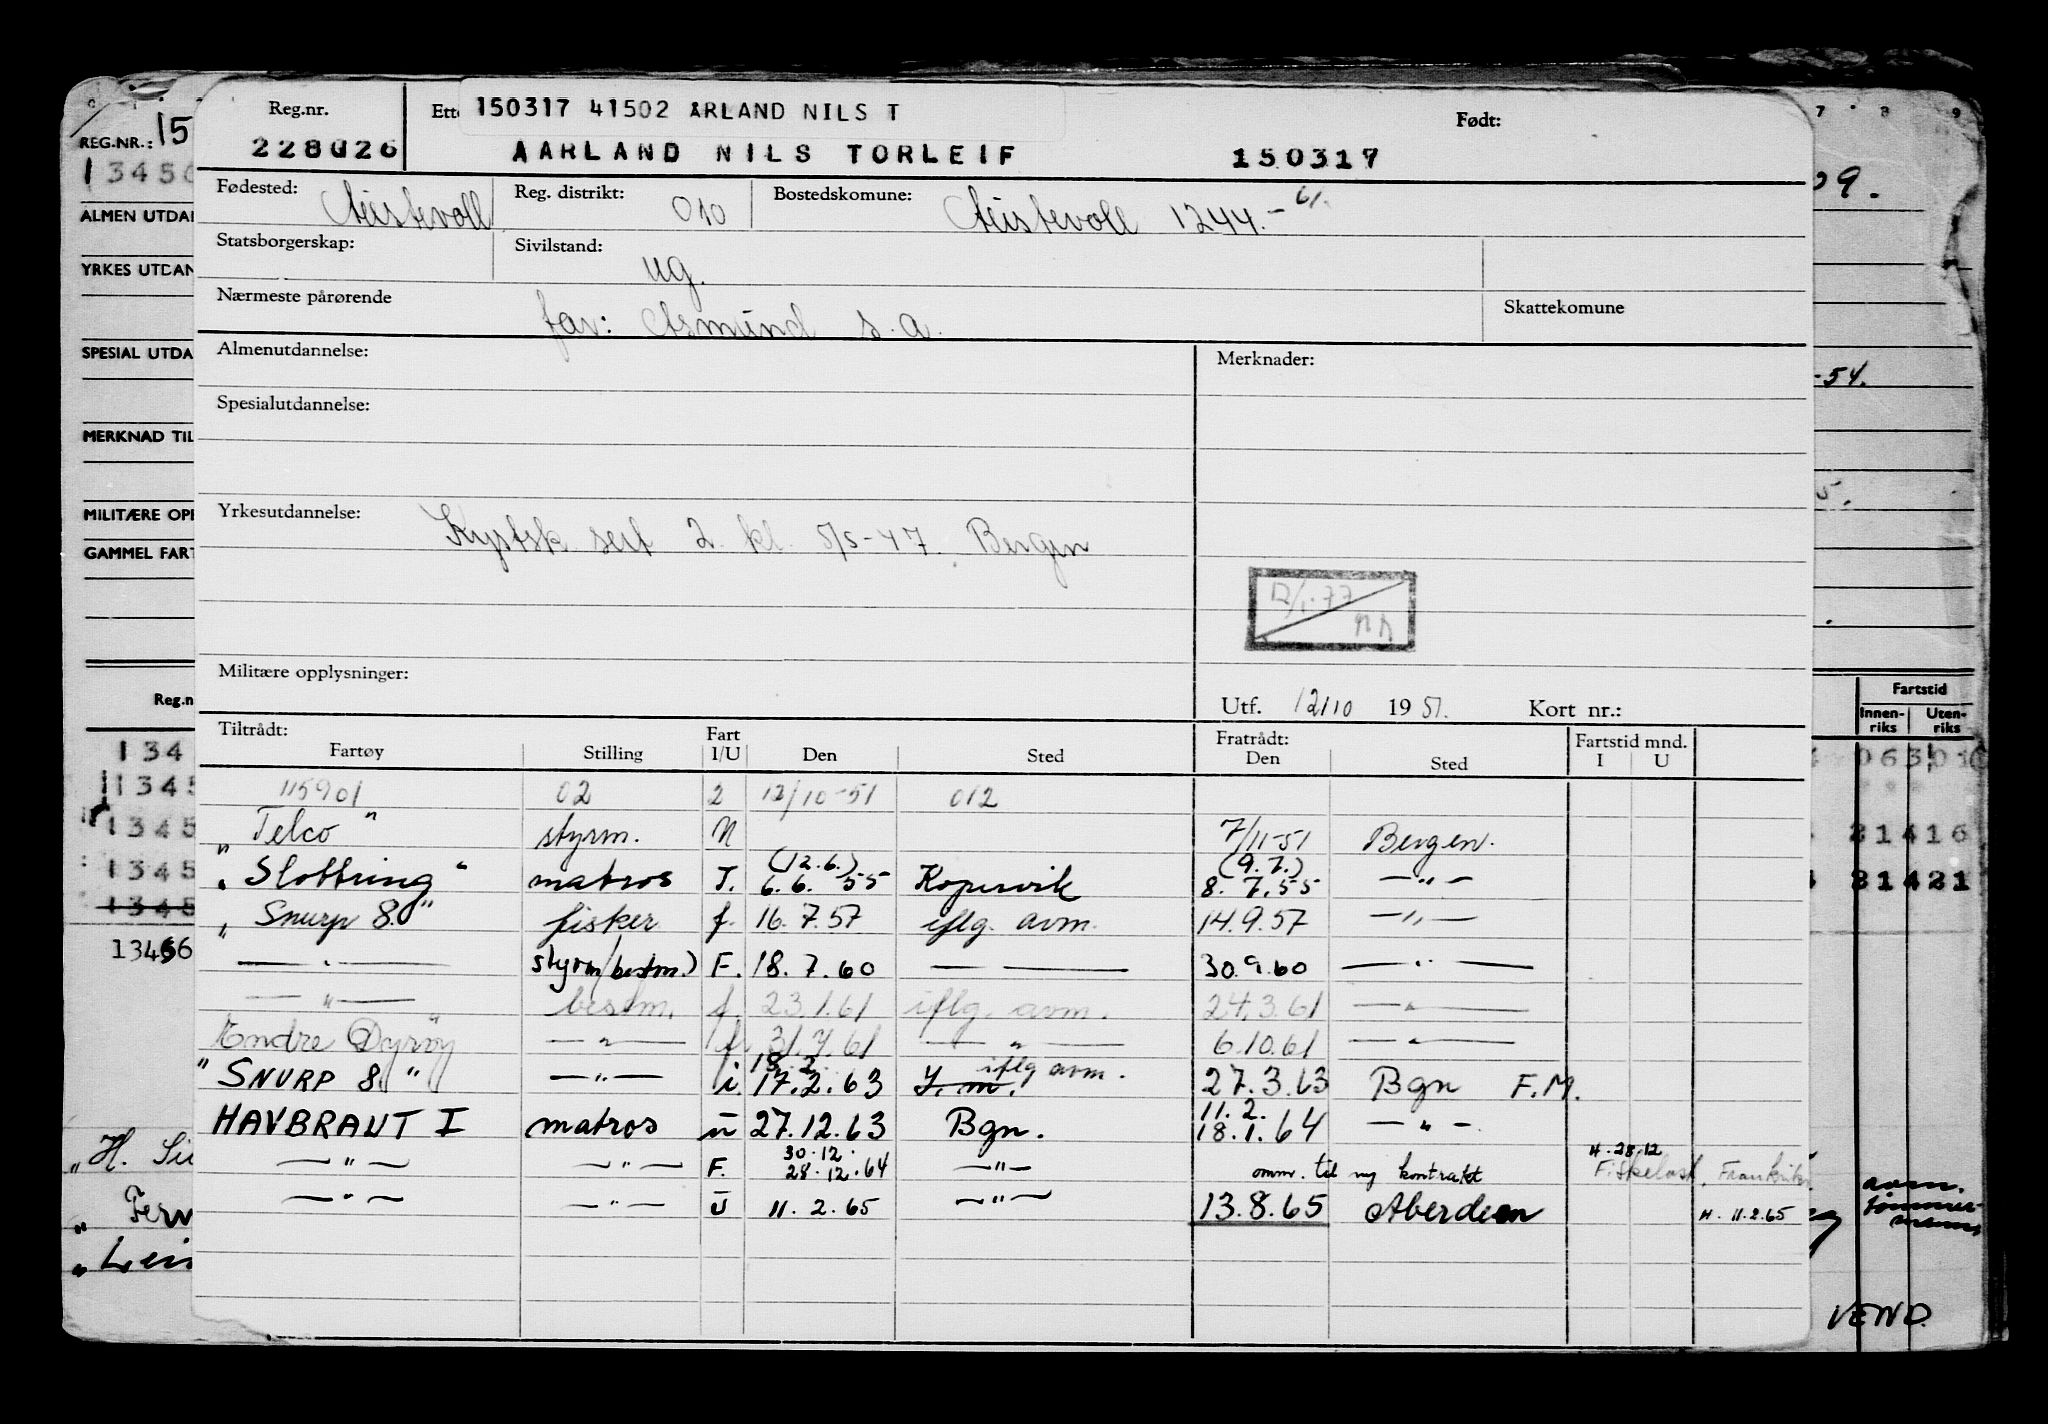 Reg.nr. Ett 150317 41502 ARLAND NILS T Født:
228026 AARLAND NILS TORLEIF 150317
REG.NR.: 15
Fødested: Austevoll Reg. distrikt: 010 Bostedskomune: Austevoll 1244.- 61.
09.
ALMEN UTDA
Statsborgerskap: Sivilstand: ug.
YRKES UTDAN
Nærmeste pårørende far: Asmund s.a. Skattekomune
SPESIAL UTDA Almenutdannelse: Merknader:
-54.
Spesialutdannelse:
MERKNAD TIL
MILITÆRE OPP Yrkesutdannelse: Kystsk. sert 2. kl. 5/5-47. Bergen
5.
GAMMEL FART
12/1-77
Militære opplysninger:
Reg.n Utf. 12/10 1951. Kort nr.: Fartstid
Innen-riks Uten-riks
Tiltrådt: Fart Fratrådt: Fartstid mnd.
Fartøy Stilling I/U Den Sted Den Sted I U
134 115901 02 2 12/10-51 012
1345 "Telco" styrm. N 7/11-51 Bergen.
1345 (12.6.) (9.7.) 21416
1345 "Slottring" matros I. 6.6. 55 Kopervik 8. 7.55 —"— 31421
1345 "Snurp 8." fisker f. 16.7.57 iflg. avm. 14.9.57 —"—
13456 —"— styrm/bestm.) F. 18.7.60 —— 30.9.60 —"—
—"— bestm. f. 23.1.61 iflg. avm. 24.3.61 —"—
Endre Dyrøy —"— f. 31.7.61 —"— 6.10.61 —"—
18.2 iflg avm.
"SNURP 8." —"— i. 17.2.63 Y.m. 27.3.63 Bgn F.M.
11.2.
HAVBRAUT I matros u 27.12.63 Bgn. 18.1.64 —"—
30.12. H. 28.12
—"— —"— F. 28.12.64 —"— omm. til ny kontrakt Fiskelast,
"H.
—"— —"— U 11.2.65 —"— 13.8.65 Aberdeen H. 11.2.65
avm.
tømmer-
"
"
VEND.